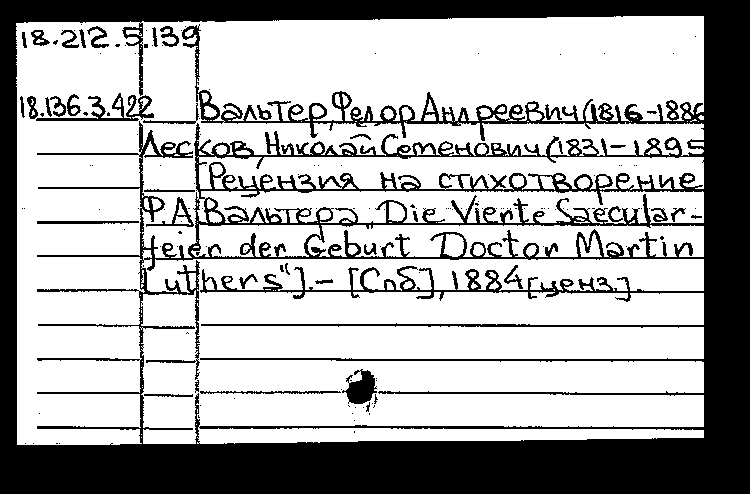 18.212.5.139
18.136.3.422 Вальтер, Федор Андреевич (1816-1886
Лесков, Николай Семенович (1831-1895
[Рецензия на стихотворение
Ф.А Вальтера „Die Vierte Saecular-
feier der Geburt Doctor Martin
Luthers"].- [Спб.], 1884 [ценз.].